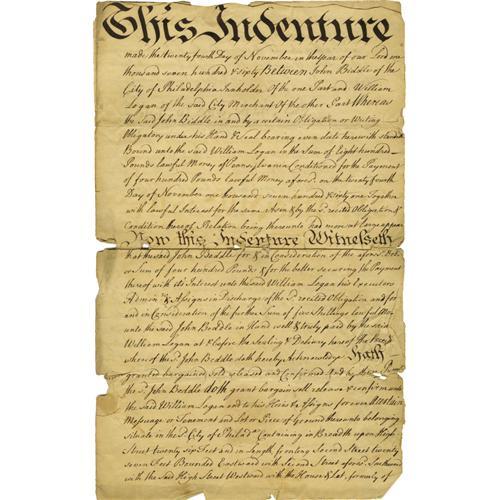 This Indenture
made the twenty fourth Day of November in the Year of our Lord one
thousand seven hundred & sixty Between John Biddle of the
City of Philadelphia Innholder Of the one Part and William
Logan of the said City Merchant Of the other Part Whereas
the said John Biddle in and by a certain Obligation or Writing
Obligatory under his Hand & Seal bearing even date herewith stands
Bound unto the said William Logan in the Sum of Eight hundred
Pounds lawful Money of Pennsylvania Conditioned for the Payment
of four hundred Pounds lawful Money afores.d on the twenty fourth
Day of November one thousand seven hundred & sixty one Together
with lawful Interest for the same As in & by the s.d recited Obligation &
Condition thereof Relation being thereunto had more at large appears
Now this Indenture Witnesseth
that the said John Biddle for & in Consideration of the afores.d Debt
or Sum of four hundred Pounds & for the better securing the Payment
thereof with its Interest unto the said William Logan his Executors
Admin.rs & Assigns in Discharge of the s.d recited Obligation and for
and in Consideration of the further Sum of five Shillings lawful Mo.y
unto the said John Biddle in Hand well & truly paid by the said
William Logan at & before the Sealing & Delivery hereof the Receipt
whereof the s.d John Biddle doth hereby Acknowledge Hath
granted bargained sold released and confirmed And by these
the s.d John Biddle doth grant bargain sell release & confirm unto
the said William Logan and to his Heirs & Assigns forever A certain
Messuage or Tenement and Lot or Piece of Ground thereunto belonging
situate in the s.d City of Philad.a Containing in Breadth upon High
Street twenty six Feet and in length fronting Second Street twenty
seven Feet Bounded Eastward with Second Street afores.d Southward
with the said High Street Westward with the House & Lot formerly of